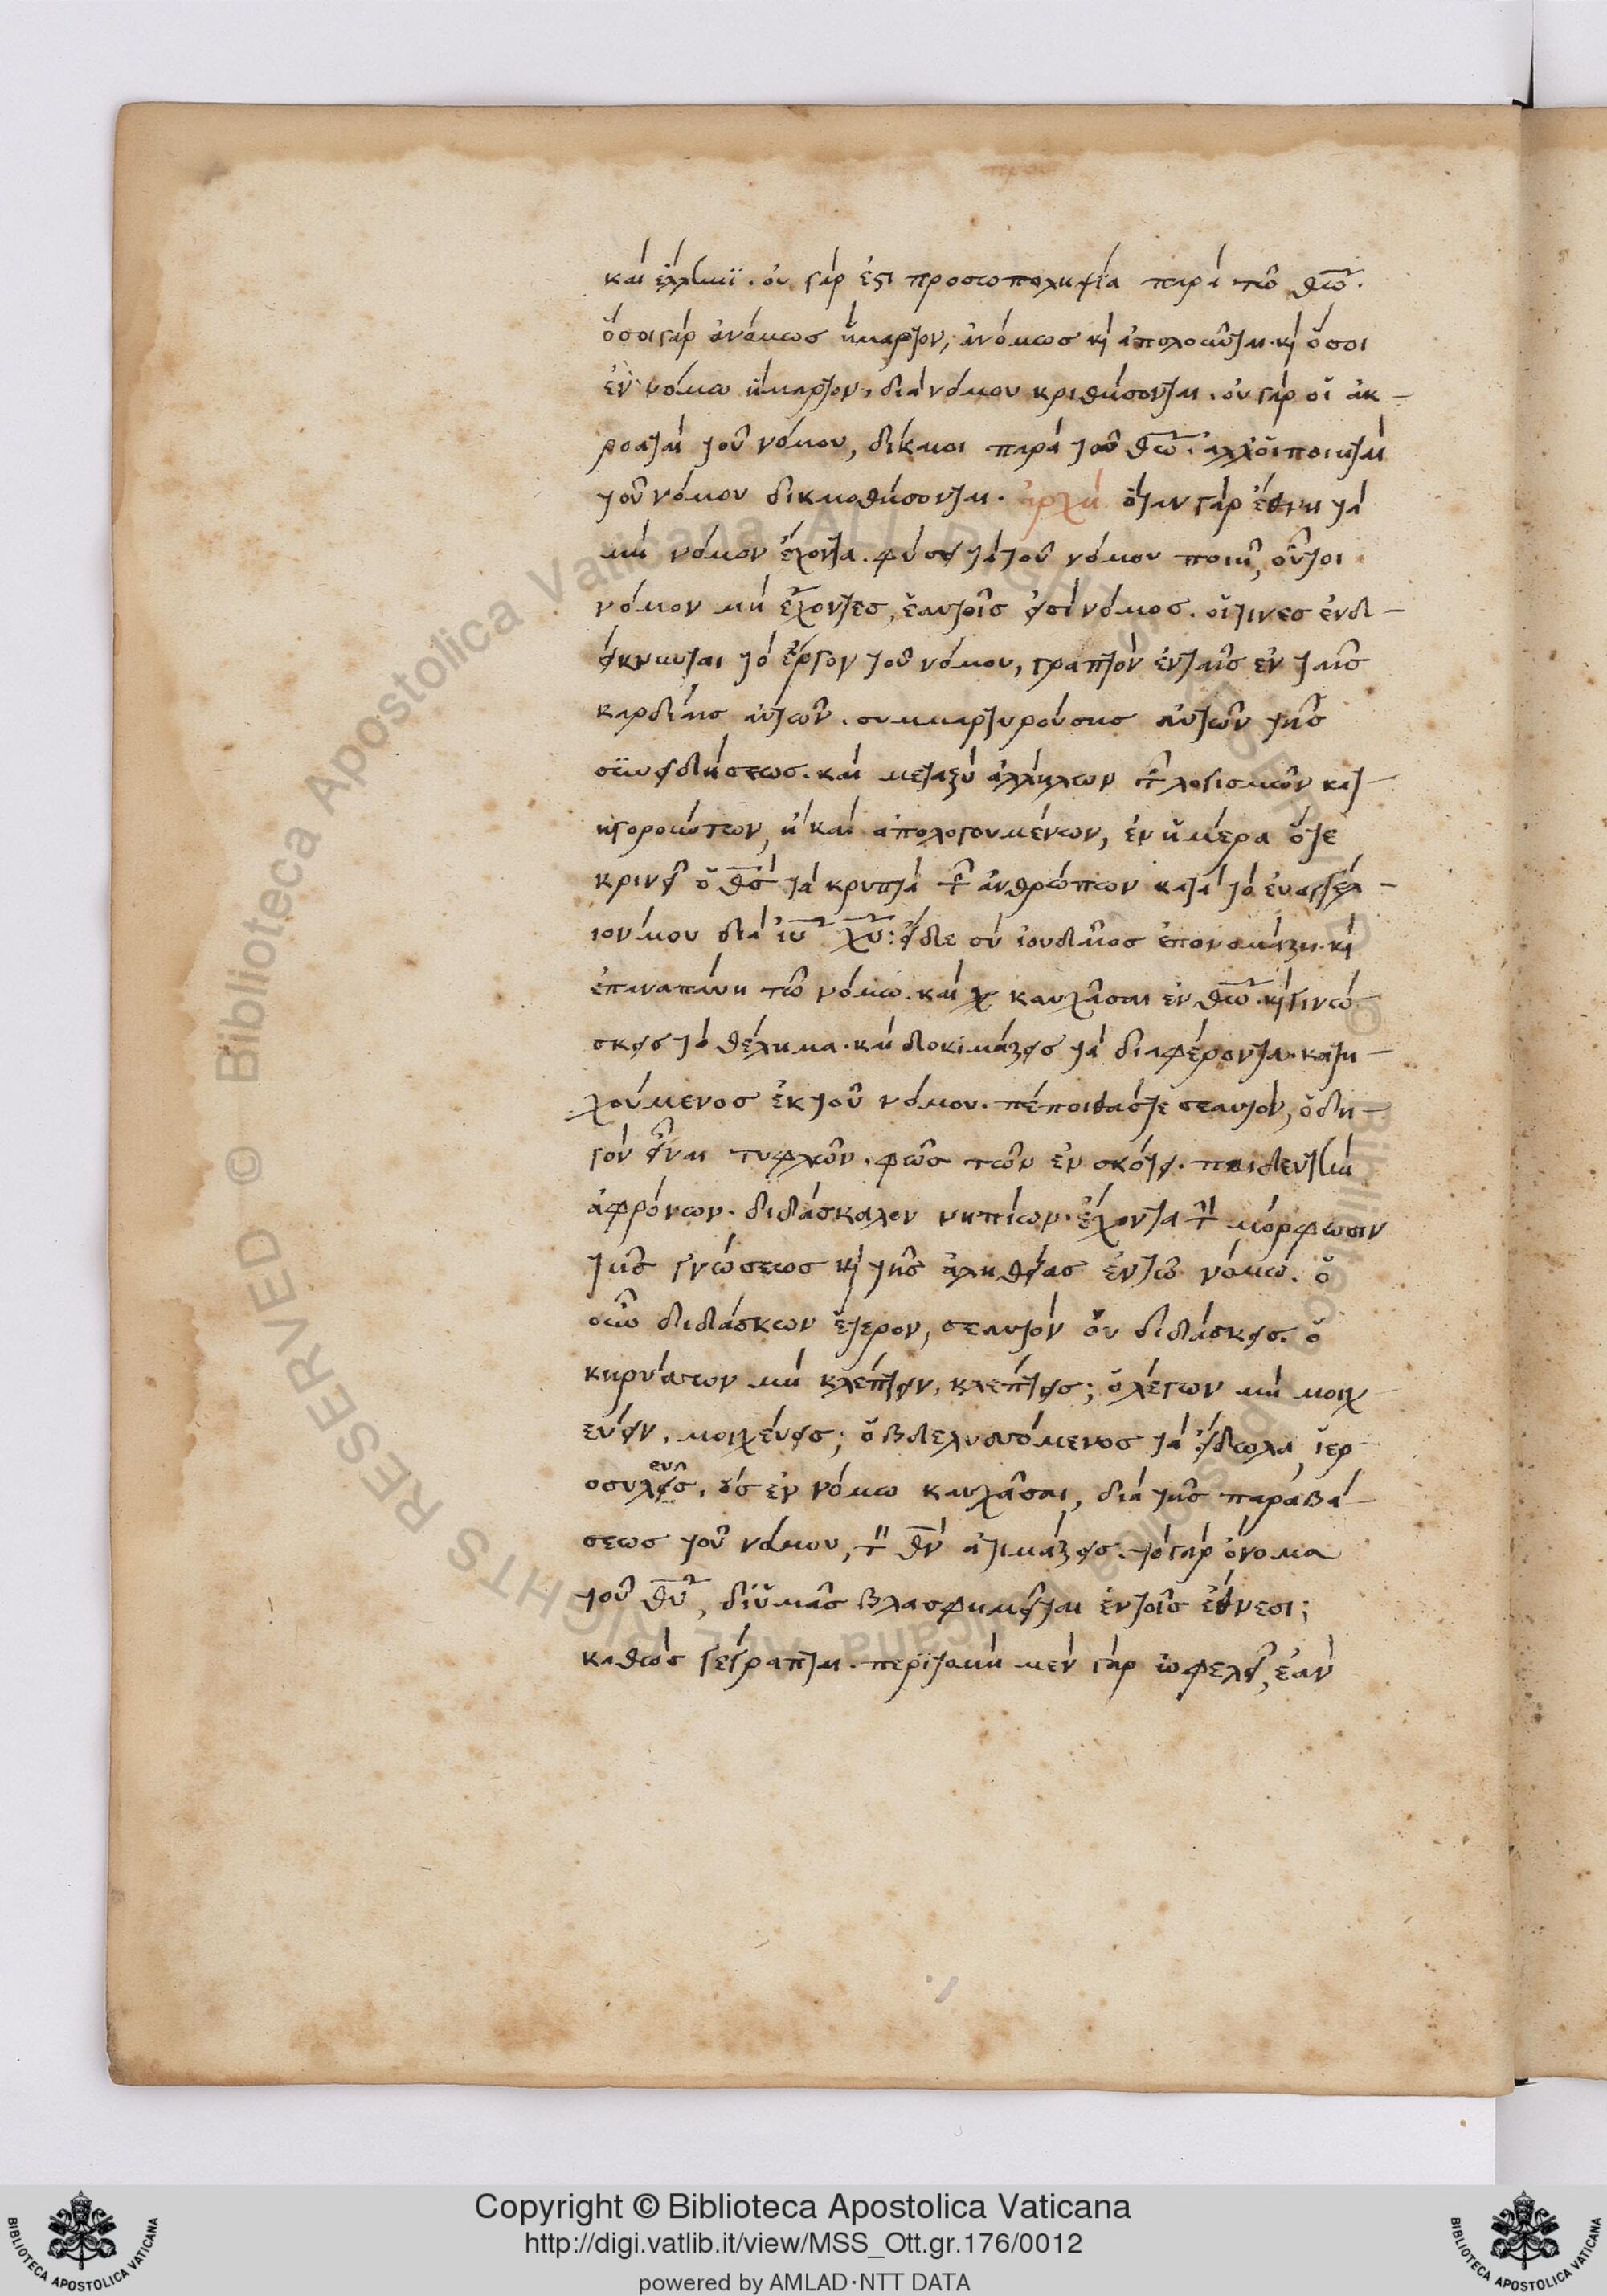 και ἕλληνϊ. οὐ γάρ ἐστι προσωποληψία παρὰ τῶ θ̅ω̅.
ὅσοι γὰρ ἀνόμως ἥμαρτον, ἀνόμως κ̀ ἀπολοῦνται. κ̀ ὅσοι
ἐν νόμω ἥμαρτον, διὰ νόμου κριθήσονται. οὐ γὰρ οἱ ἀκ-
ροαταὶ τοῦ νόμου, δίκαιοι παρὰ τοῦ θ̅ω̅. ἀλλ' οἱ ποιηταὶ
τοῦ νόμου δικαιωθήσονται. ἀρχὴ ὅταν γὰρ ἔθνη τὰ
μὴ νόμον ἔχοντα. φύσει τὰ τοῦ νόμου ποιῆ, οὗτοι
νόμον μὴ ἔχοντες, ἑαυτοῖς εἰσὶ νόμος. οἵτινες ἐνδ-
είκνυνται τὸ ἔργον τοῦ νόμου, γραπτὸν ἐν ταῖς ἐν ταῖς
καρδίαις αὐτῶν. συμμαρτυρούσης αὐτῶν τῆς
συνειδήσεως. καὶ μεταξὺ ἀλλήλων τῶν λογισμῶν κατ-
ηγορούντων, ἢ καὶ ἀπολογουμένων, ἐν ἡμέρα ὅτε
κρινεῖ ὁ θ̅ς̅ τὰ κρυπτὰ τῶν ἀνθρώπων κατὰ τὸ εὐαγγέλ-
ιον μου διὰ ἰ̅υ̅ χ̅υ̅: εἰ δε σὺ ἰουδαῖος ἐπονομάζη. κ̀
ἐπαναπαύη τῶ νόμω. καὶ χ καυχᾶσαι ἐν θ̅ω̅. κ̀ γινώ-
σκεις τὸ θέλημα. καὶ δοκιμάζεις τὰ διαφέροντα. κατη-
χούμενος ἐκ τοῦ νόμου. πέποιθάς τε σεαυτὸν, ὁδη-
γὸν εἶναι τυφλῶν. φῶς τῶν ἐν σκότει. παιδευτὴν
ἀφρόνων. διδάσκαλον νηπίων. ἔχοντα τὴν μόρφωσιν
τῆς γνώσεως κ̀ τῆς ἀληθείας ἐν τῶ νόμω. ὁ
οὖν διδάσκων ἕτερον, σεαυτὸν οὐ διδάσκεις. ὁ
κηρύσσων μὴ κλέπτειν, κλέπτεις; ὁ λέγων μὴ μοιχ
εύειν, μοιχεύεις; ὁ βδελυσσόμενος τὰ εἴδωλα, ἱερ-
οσυλεῖς. ὃς ἐν νόμω καυχᾶσαι, διὰ τῆς παραβά-
σεως τοῦ νόμου, τὸν θ̅ν̅ ἀτιμάζεις. τὸ γὰρ ὄνομα
τοῦ θ̅υ̅, δι' ὑμᾶς βλασφημεῖται ἐν τοῖς ἔθνεσι;
καθὼς γέγραπται. περιτομὴ μεν γὰρ ὠφελεῖ, ἐὰν
Copyright © Biblioteca Apostolica Vaticana
http://digi.vatlib.it/view/MSS_Ott.gr.176/0012
powered by AMLAD·NTT DATA